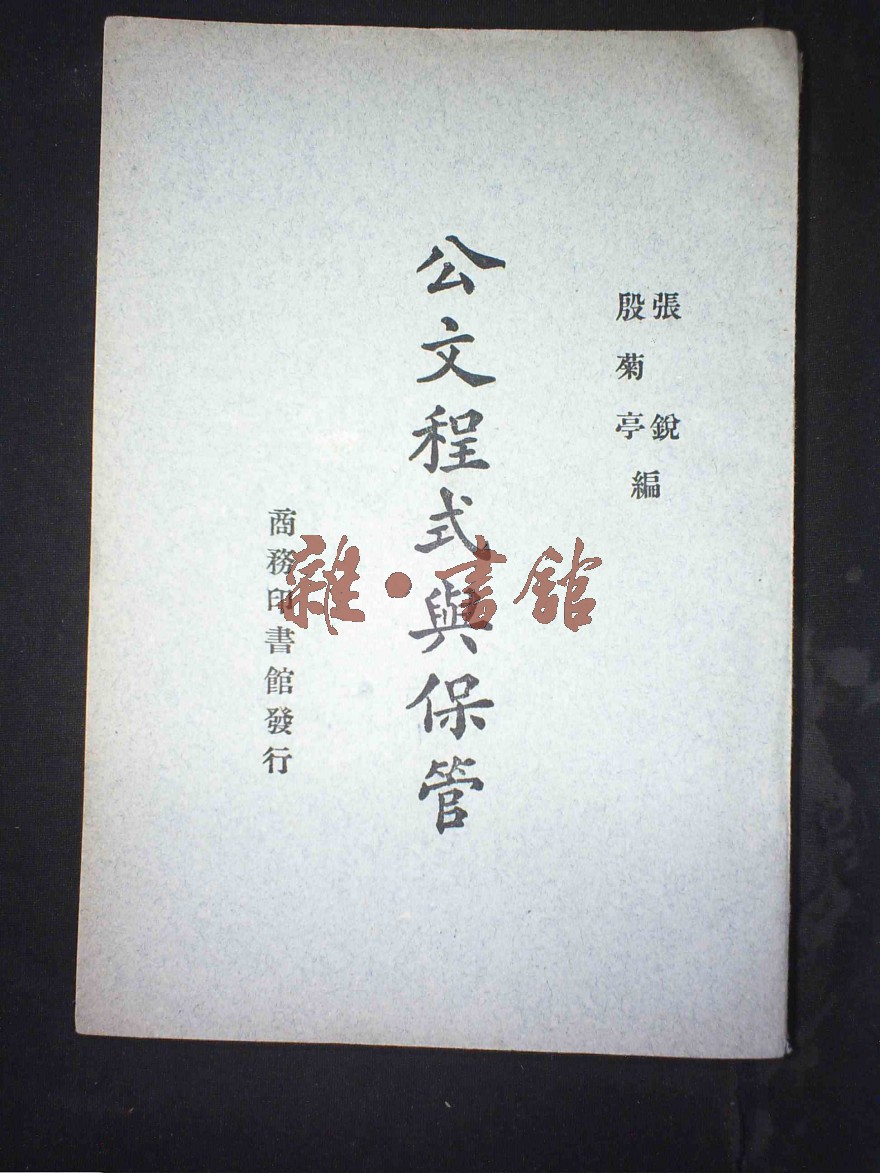 張銳
殷菊亭
編
公文程式與保管
商務印書館發行
雜·書館